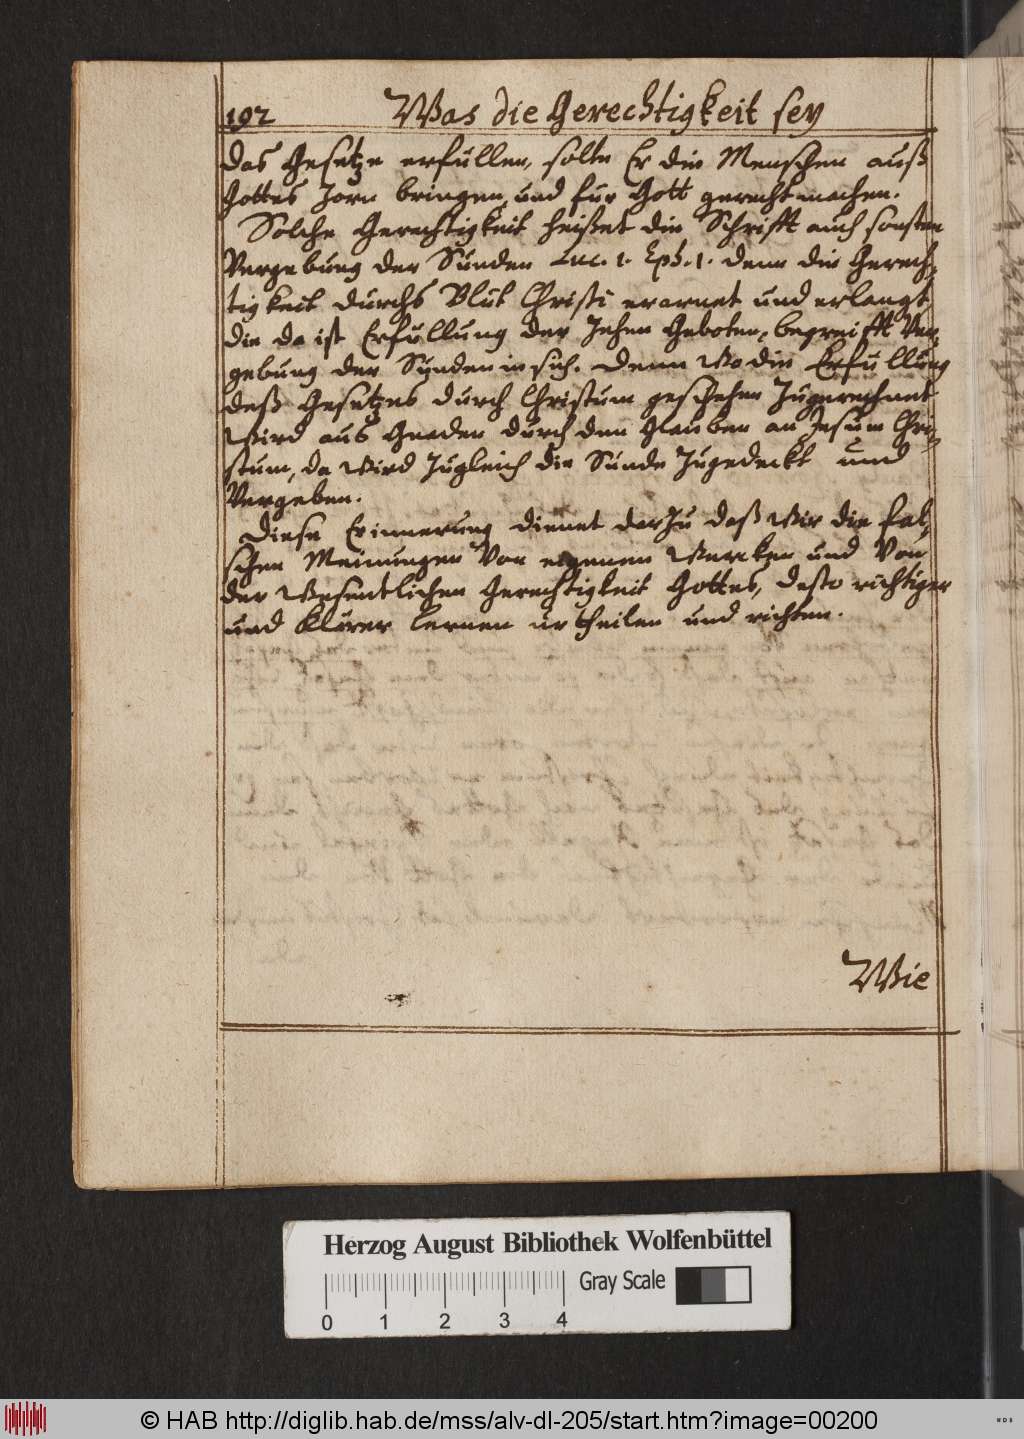 192 Was die Gerechtigkeit sey
das Gesetze erfüllen, solte Er die Menschen auß
Gottes Zorn bringen, und fur Gott gerecht machen.
Solche Gerechtigkeit heißet die Schrifft auch sonsten
Vergebung der Sünden Luc. 1. Eph. 1. denn die Gerech-
tigkeit durchs Blut Christi erarnet und erlangt,
die da ist Erfüllung der Zehen Geboten, begreifft Ver-
gebung der Sünden in sich. Denn Wo die Erfüllung
deß Gesetzes durch Christum geschehen Zugerechnet
Wird aus Gnaden durch den Glauben an Jesum Chri-
stum, da Wird Zugleich die Sünde Zugedeckt und
Vergeben.
Diese Erinnerung dienet darZu daß Wir die fal-
schen Meinungen Von eigenen Wercken und Von
der Wesentlichen Gerechtigkeit Gottes, desto richtiger
und Klärer lernen urtheilen und richten.
Wie
Herzog August Bibliothek Wolfenbüttel
Gray Scale
0 1 2 3 4
© HAB http://diglib.hab.de/mss/alv-dl-205/start.htm?image=00200